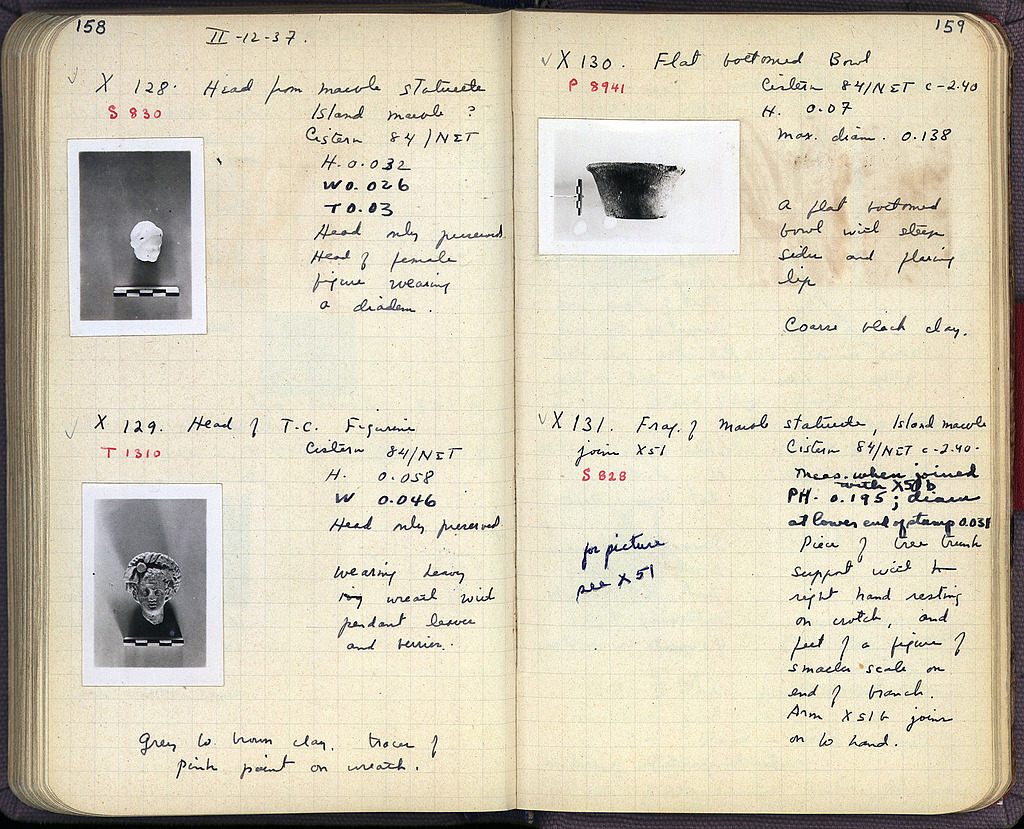 158
II-12-37.
X 128. Head from marble statuette
S 830
Island marble ?
Cistern 84/NET
H. 0.032
W 0.026
T 0.03
Head only preserved.
Head of female
figure wearing
a diadem.
X 129. Head of T.C. Figurine
T 1310
Cistern 84/NET
H. 0.058
W 0.046
Head only preserved.
wearing heavy
ivy wreath with
pendant leaves
and berries.
Grey to brown clay. traces of
pink paint on wreath.
159
X 130. Flat bottomed Bowl
P 8941
Cistern 84/NET c-2.40
H. 0.07
max. diam. 0.138
A flat bottomed
bowl with steep
sides and flaring
lip
Coarse black clay.
X 131. Frag. of Marble statuette, Island marble
join X51
Cistern 84/NET c-2.40.
S 828
Meas. when joined
with X51b
PH. 0.195; diam
at lower end of stump 0.031
for picture
see X51
Piece of tree trunk
support with
right hand resting
on crotch, and
feet of a figure of
smaller scale on
end of branch.
Arm X51b joins
on to hand.